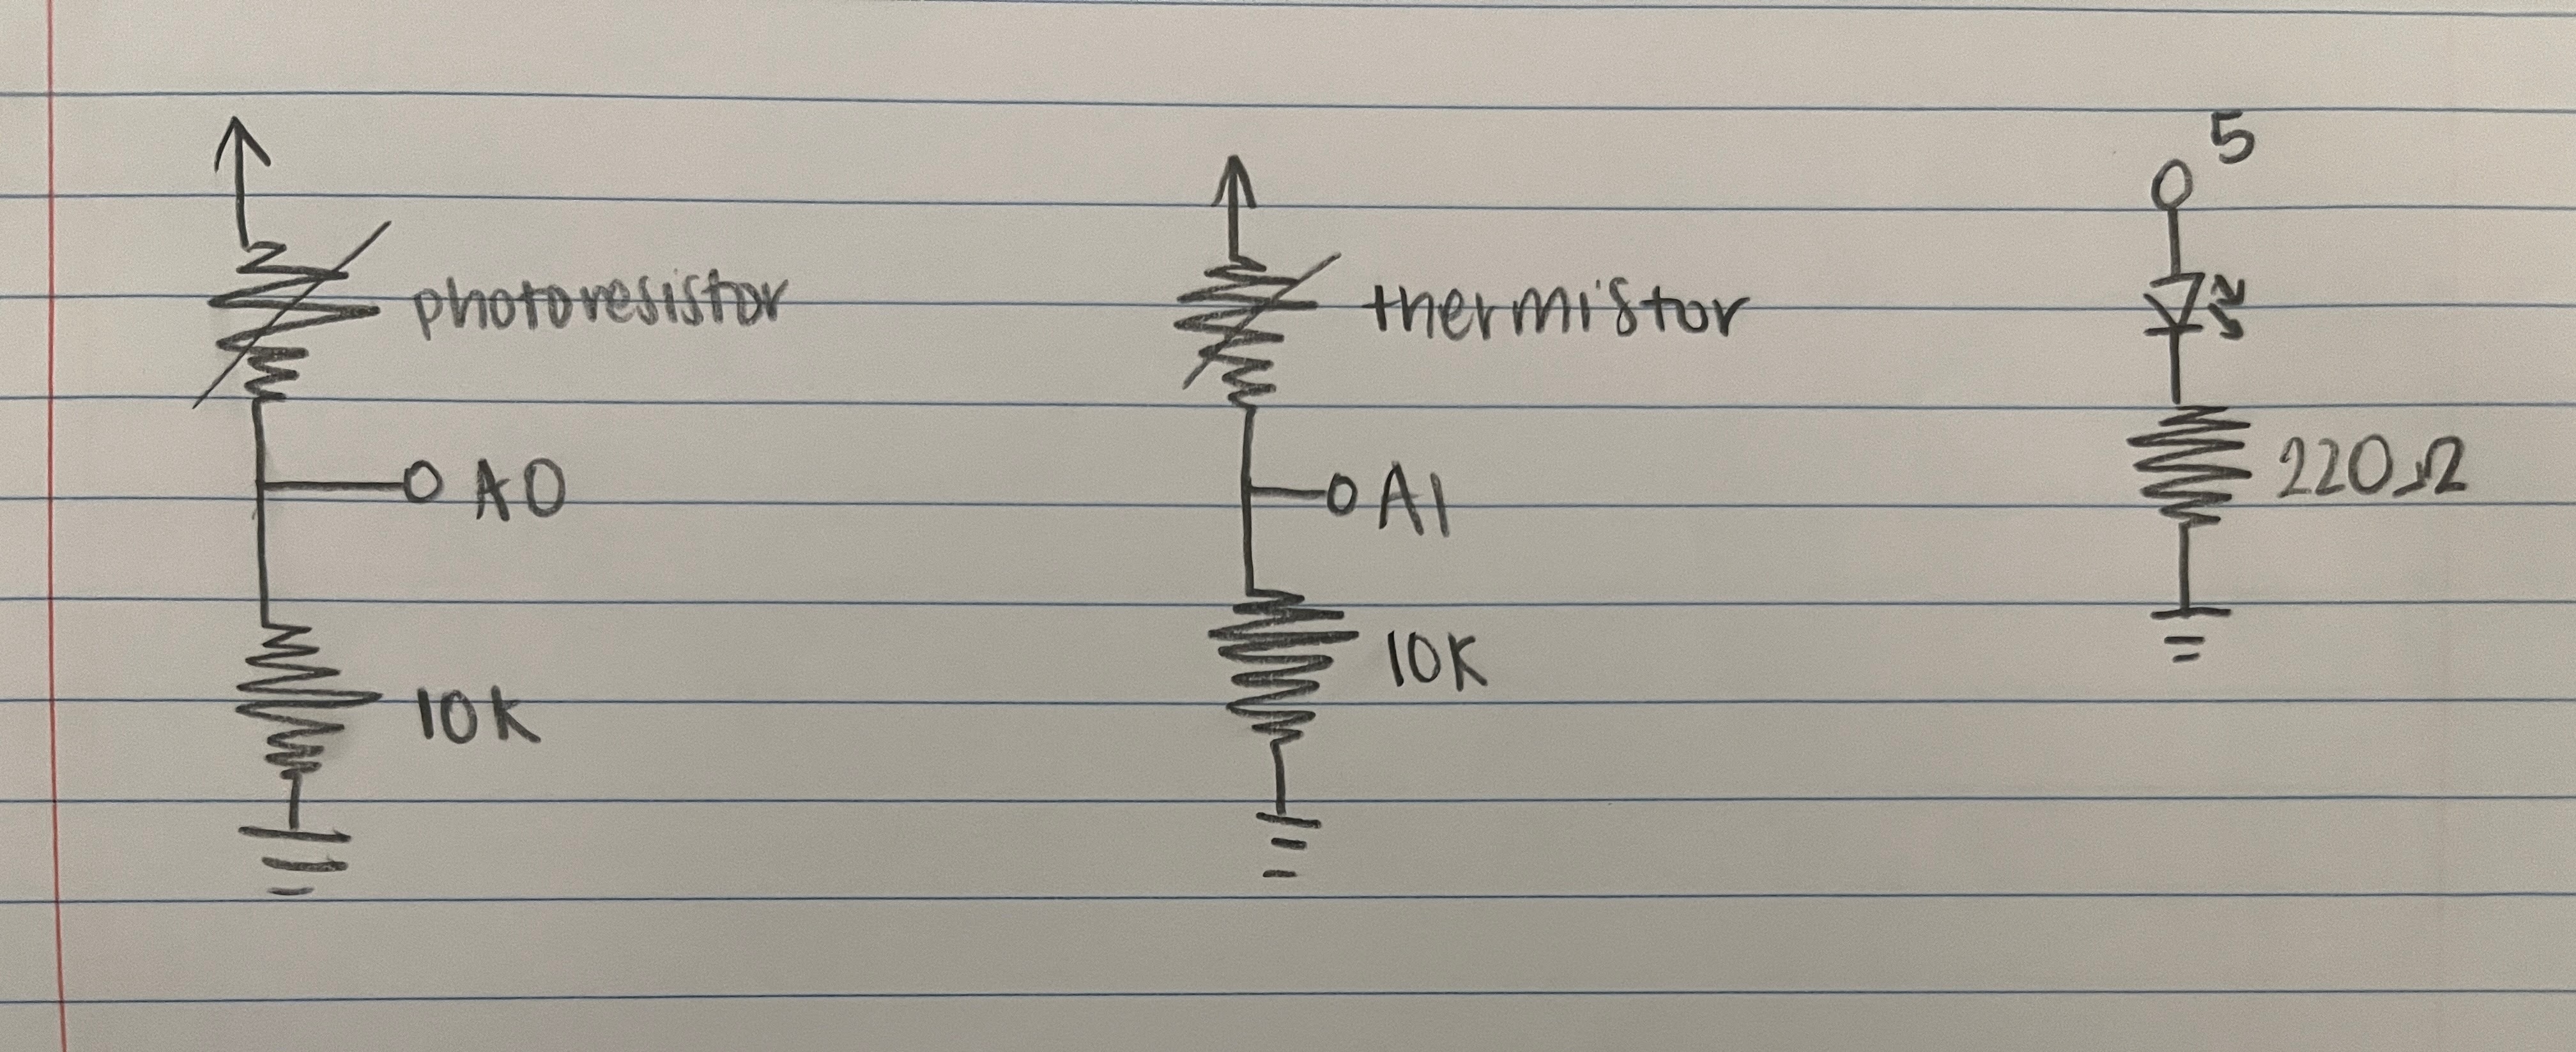 photoresistor
A0
10K
thermistor
A1
10K
5
220Ω